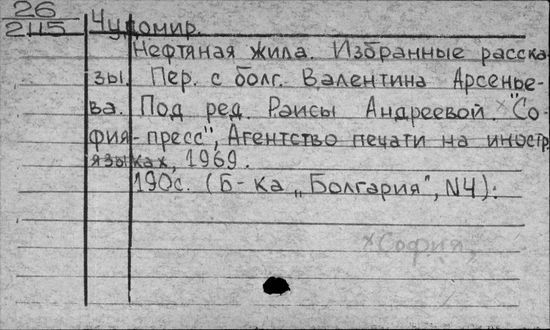 26
2115
Чудомир.
Нефтяная жила. Избранные расска-
зы. Пер. с болг. Валентина Арсенье-
ва. Под ред. Раисы Андреевой. ×"Со-
фия-пресс", Агентство печати на иностр.
языках, 1969.
190с. (Б-ка „Болгария", N4).
×София,